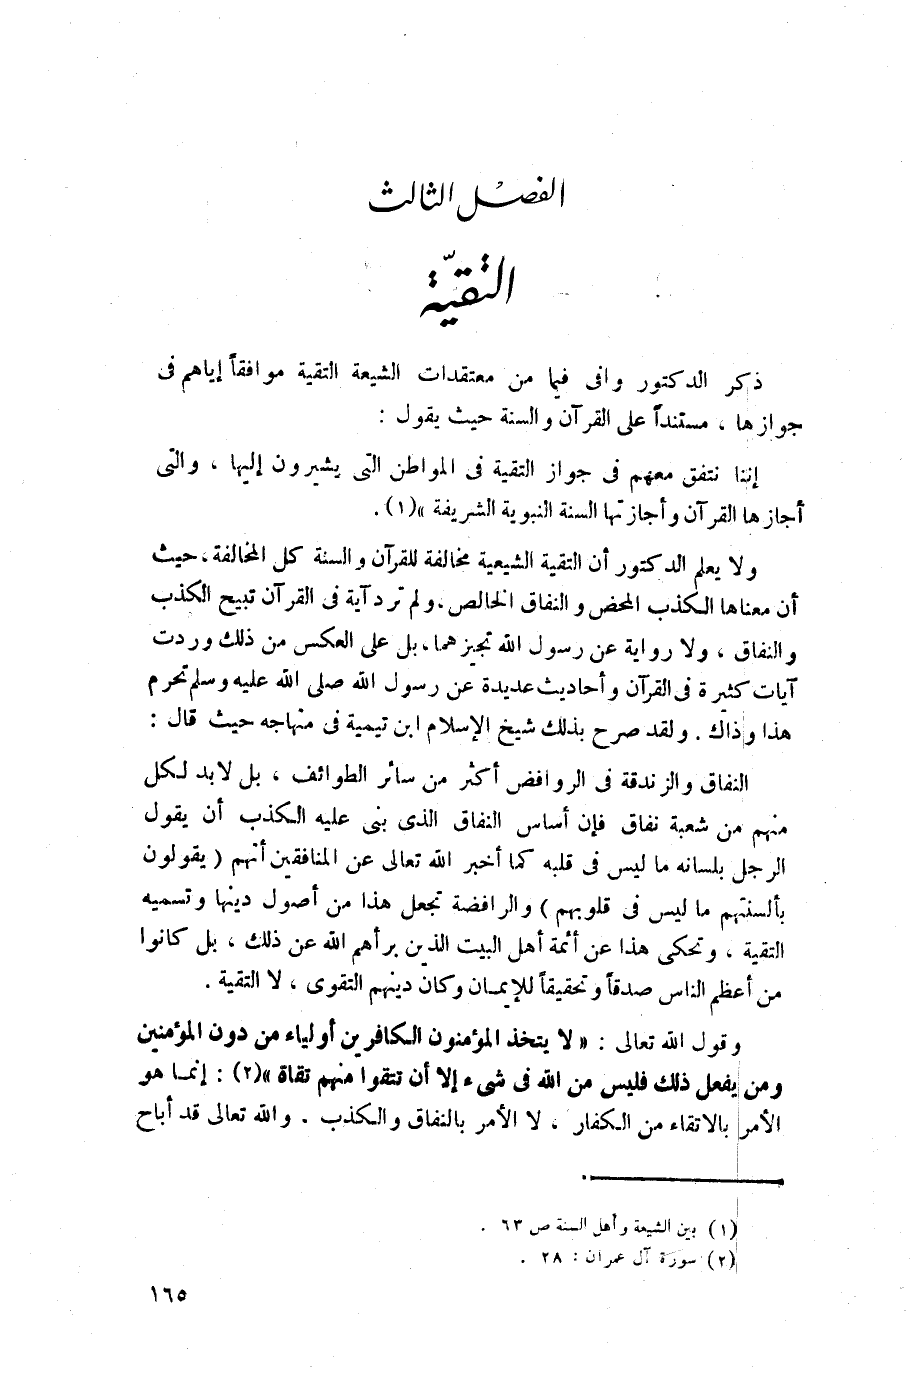 الفصل الثالث
التقيّة
ذكر الدكتور وافى فيما من معتقدات الشيعة التقية موافقاً إياهم فى
جوازها ، مستنداً على القرآن والسنة حيث يقول :
إننا نتفق معهم فى جواز التقية فى المواطن التى يشيرون إليها ، والتى
أجازها القرآن وأجازتها السنة النبوية الشريفة »(١) .
ولا يعلم الدكتور أن التقية الشيعية مخالفة للقرآن والسنة كل المخالفة ، حيث
أن معناها الكذب المحض والنفاق الخالص ، ولم ترد آية فى القرآن تبيح الكذب
والنفاق ، ولا رواية عن رسول الله تجيزهما ، بل على العكس من ذلك وردت
آيات كثيرة فى القرآن وأحاديث عديدة عن رسول الله صلى الله عليه وسلم تحرم
هذا وذاك . ولقد صرح بذلك شيخ الإسلام ابن تيمية فى منهاجه حيث قال :
النفاق والزندقة فى الروافض أكثر من سائر الطوائف ، بل لابد لكل
منهم من شعبة نفاق فإن أساس النفاق الذى بنى عليه الكذب أن يقول
الرجل بلسانه ما ليس فى قلبه كما أخبر الله تعالى عن المنافقين أنهم ( يقولون
بألسنتهم ما ليس فى قلوبهم ) والرافضة تجعل هذا من أصول دينها وتسميه
التقية ، وتحكى هذا عن أئمة أهل البيت الذين برأهم الله عن ذلك ، بل كانوا
من أعظم الناس صدقاً وتحقيقاً للإيمان وكان دينهم التقوى ، لا التقية .
وقول الله تعالى : « لا يتخذ المؤمنون الكافرين أولياء من دون المؤمنين
ومن يفعل ذلك فليس من الله فى شىء إلا أن تتقوا منهم تقاة »(٢) : إنما هو
الأمر بالاتقاء من الكفار ، لا الأمر بالنفاق والكذب . والله تعالى قد أباح
(١) بين الشيعة وأهل السنة ص ٦٣ .
(٢) سورة آل عمران : ٢٨ .
١٦٥